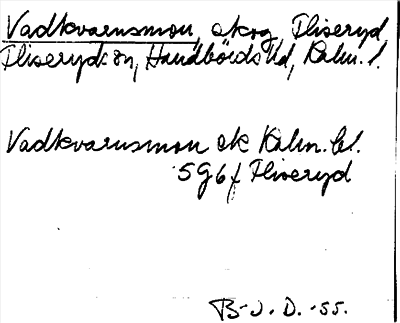 Vadkvarnsmon, skog, Fliseryd,
Fliseryds sn, Handbörds hd, Kalm. l.
Vadkvarnsmon ek Kalm. bl.
5G6f Fliseryd
B-J. D. -55.